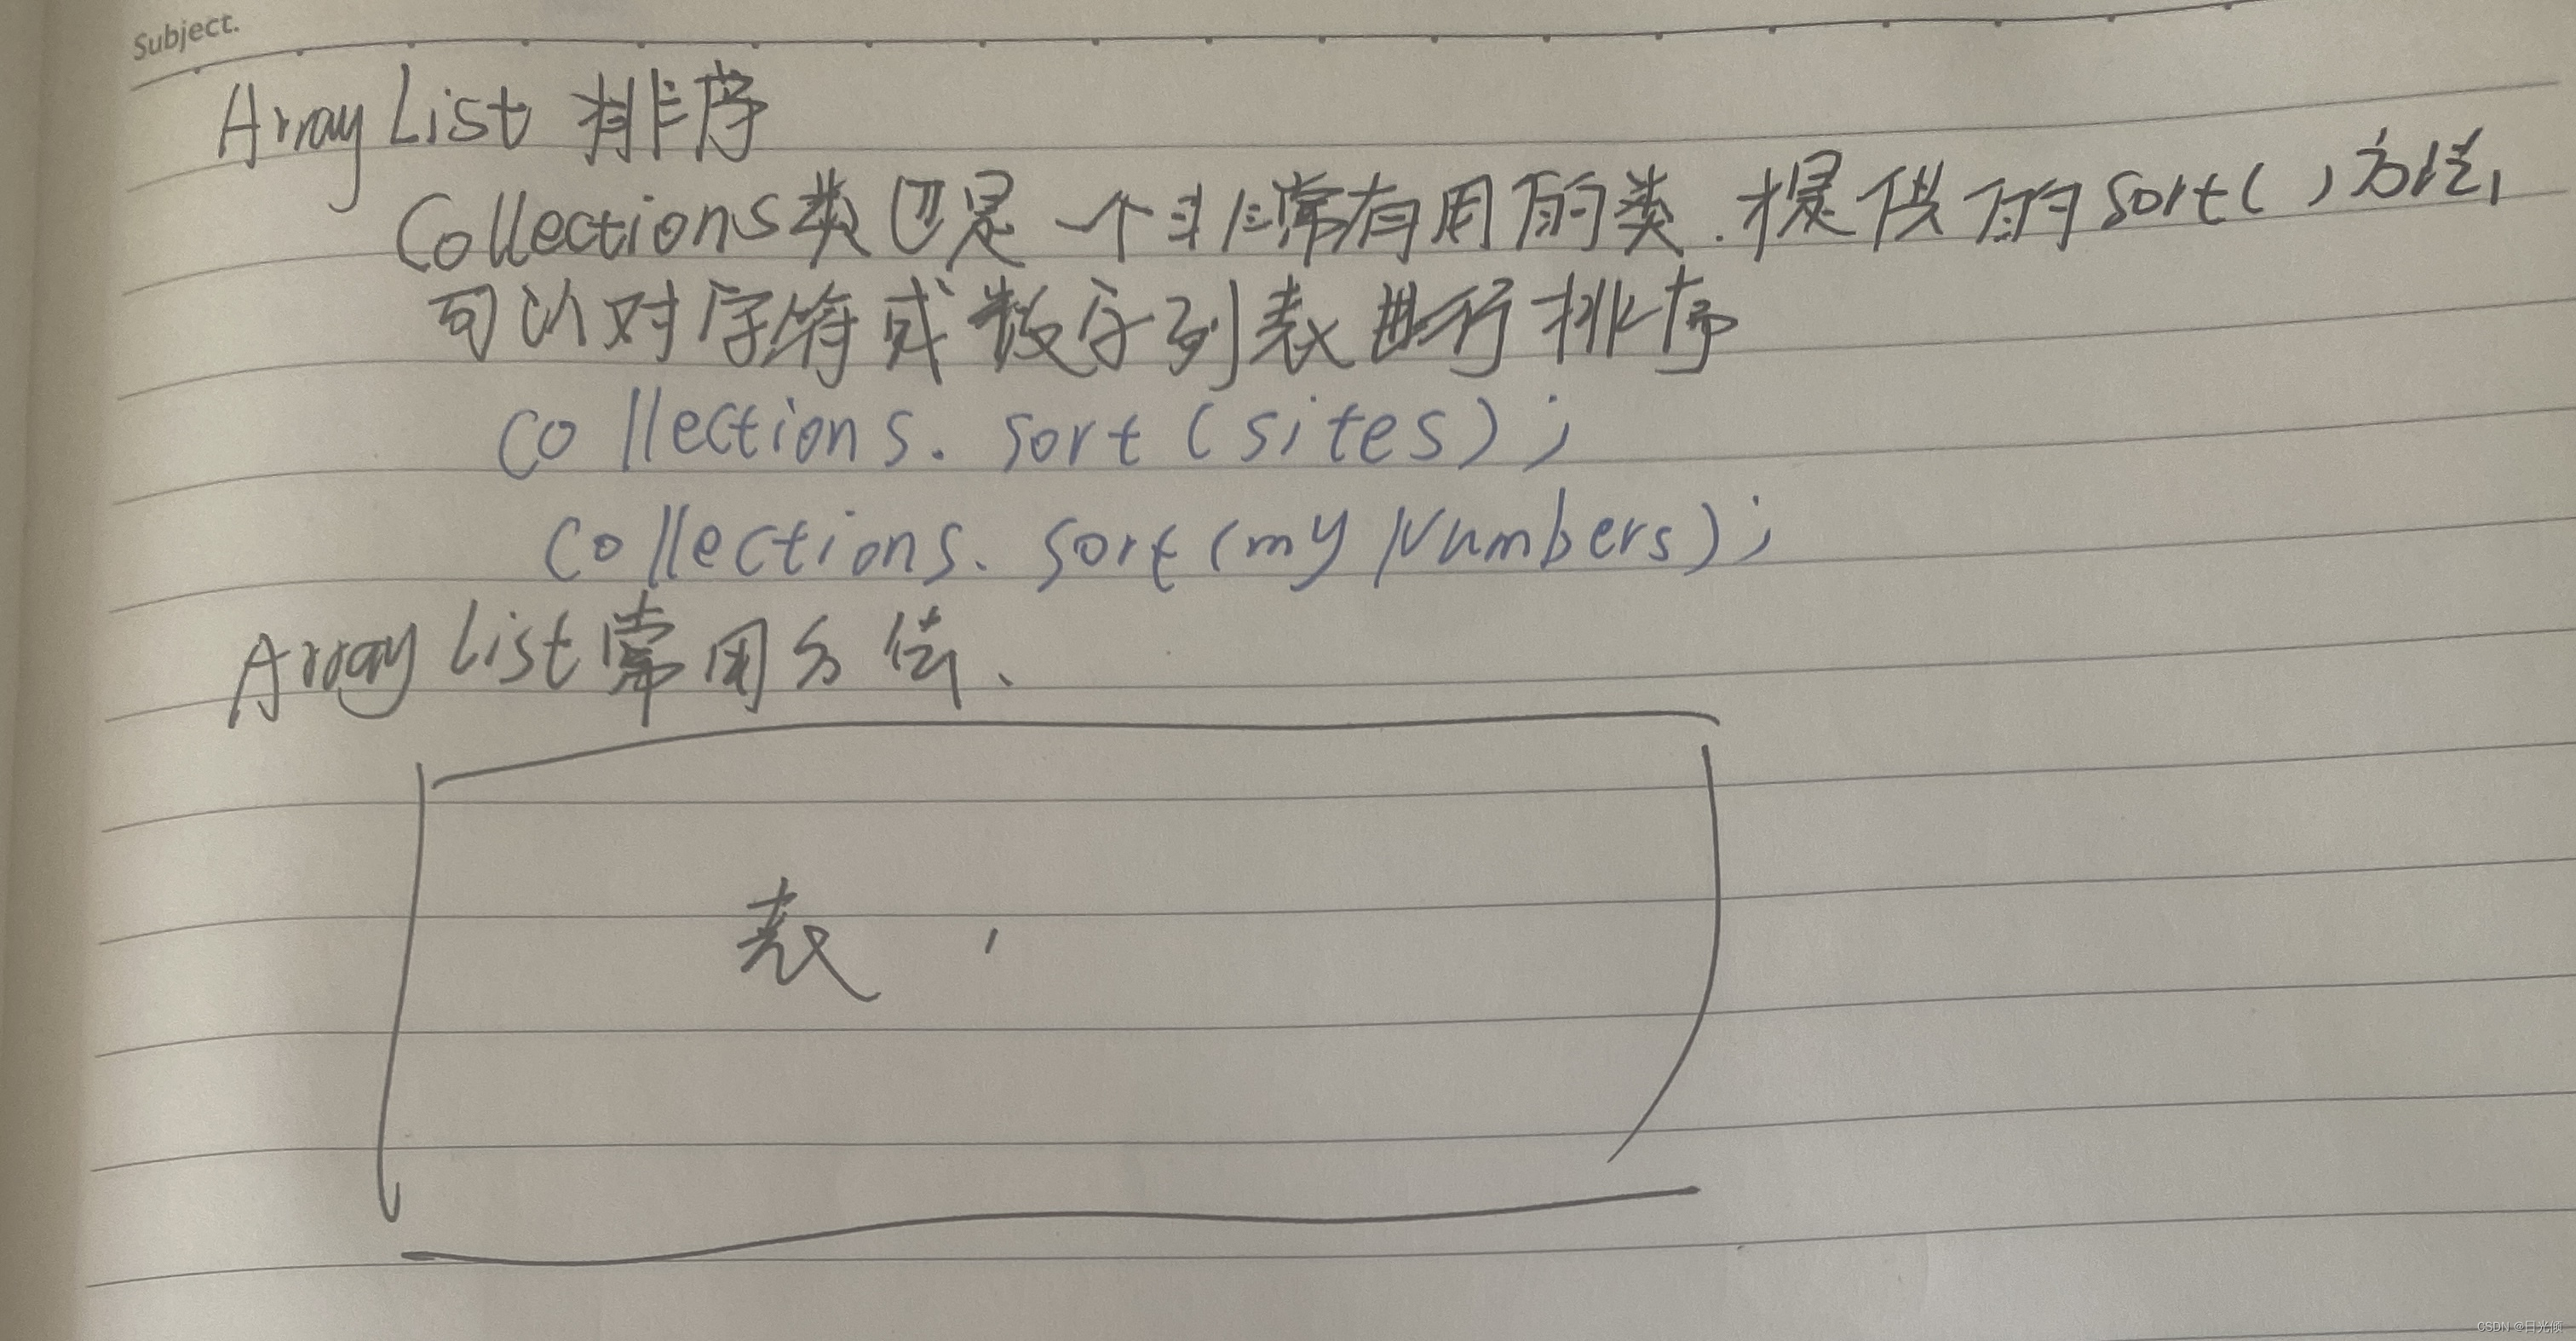 Subject.
ArrayList 排序
Collections类也是一个非常有用的类.提供的sort()方法,
可以对字符或数字列表进行排序
Collections.sort(sites);
Collections.sort(myNumbers);
ArrayList常用方法.
表.
CSDN @日光倾